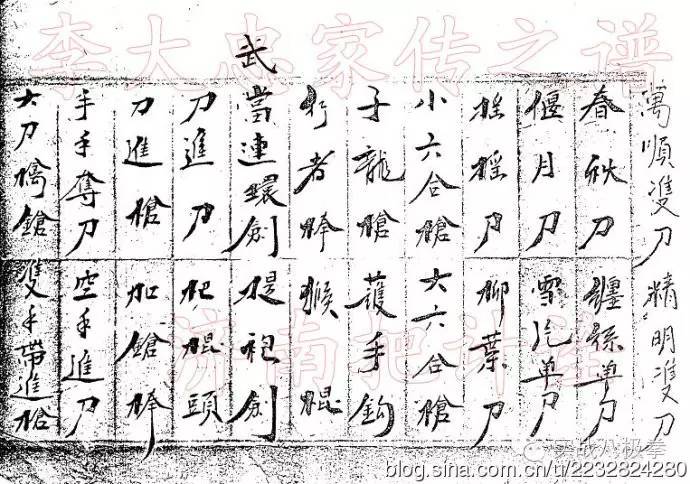 李大忠家传之谱
萬順雙刀 精明雙刀
春秋刀 纏絲单刀
偃月刀 雪片单刀
搖搖刀 柳葉刀
小六合槍 大六合槍
子龍槍 護手鈎
行者棒 猴棍
武當連環劍 提袍劍
刀進刀 把棍頭
刀進槍 加鎗棒
手手奪刀 空手進刀
大刀擒鎗 雙手帶進槍
济南
实战八极拳
blog.sina.com.cn/u/2232824280